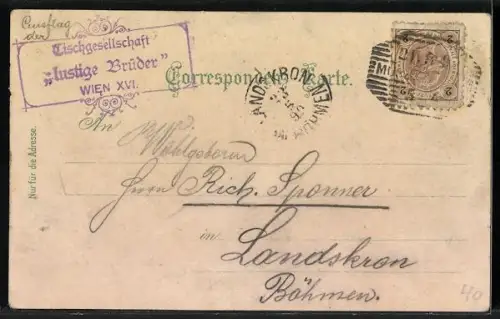 Ausflug
der
Tischgesellschaft
„lustige Brüder”
WIEN XVI.
Correspondenz-Karte.
LANDSKRON
BÖHMEN
Nur für die Adresse.
An
Wohlgeboren
Herrn Rich. Sponner
in
Landskron
Böhmen.
2
2
40